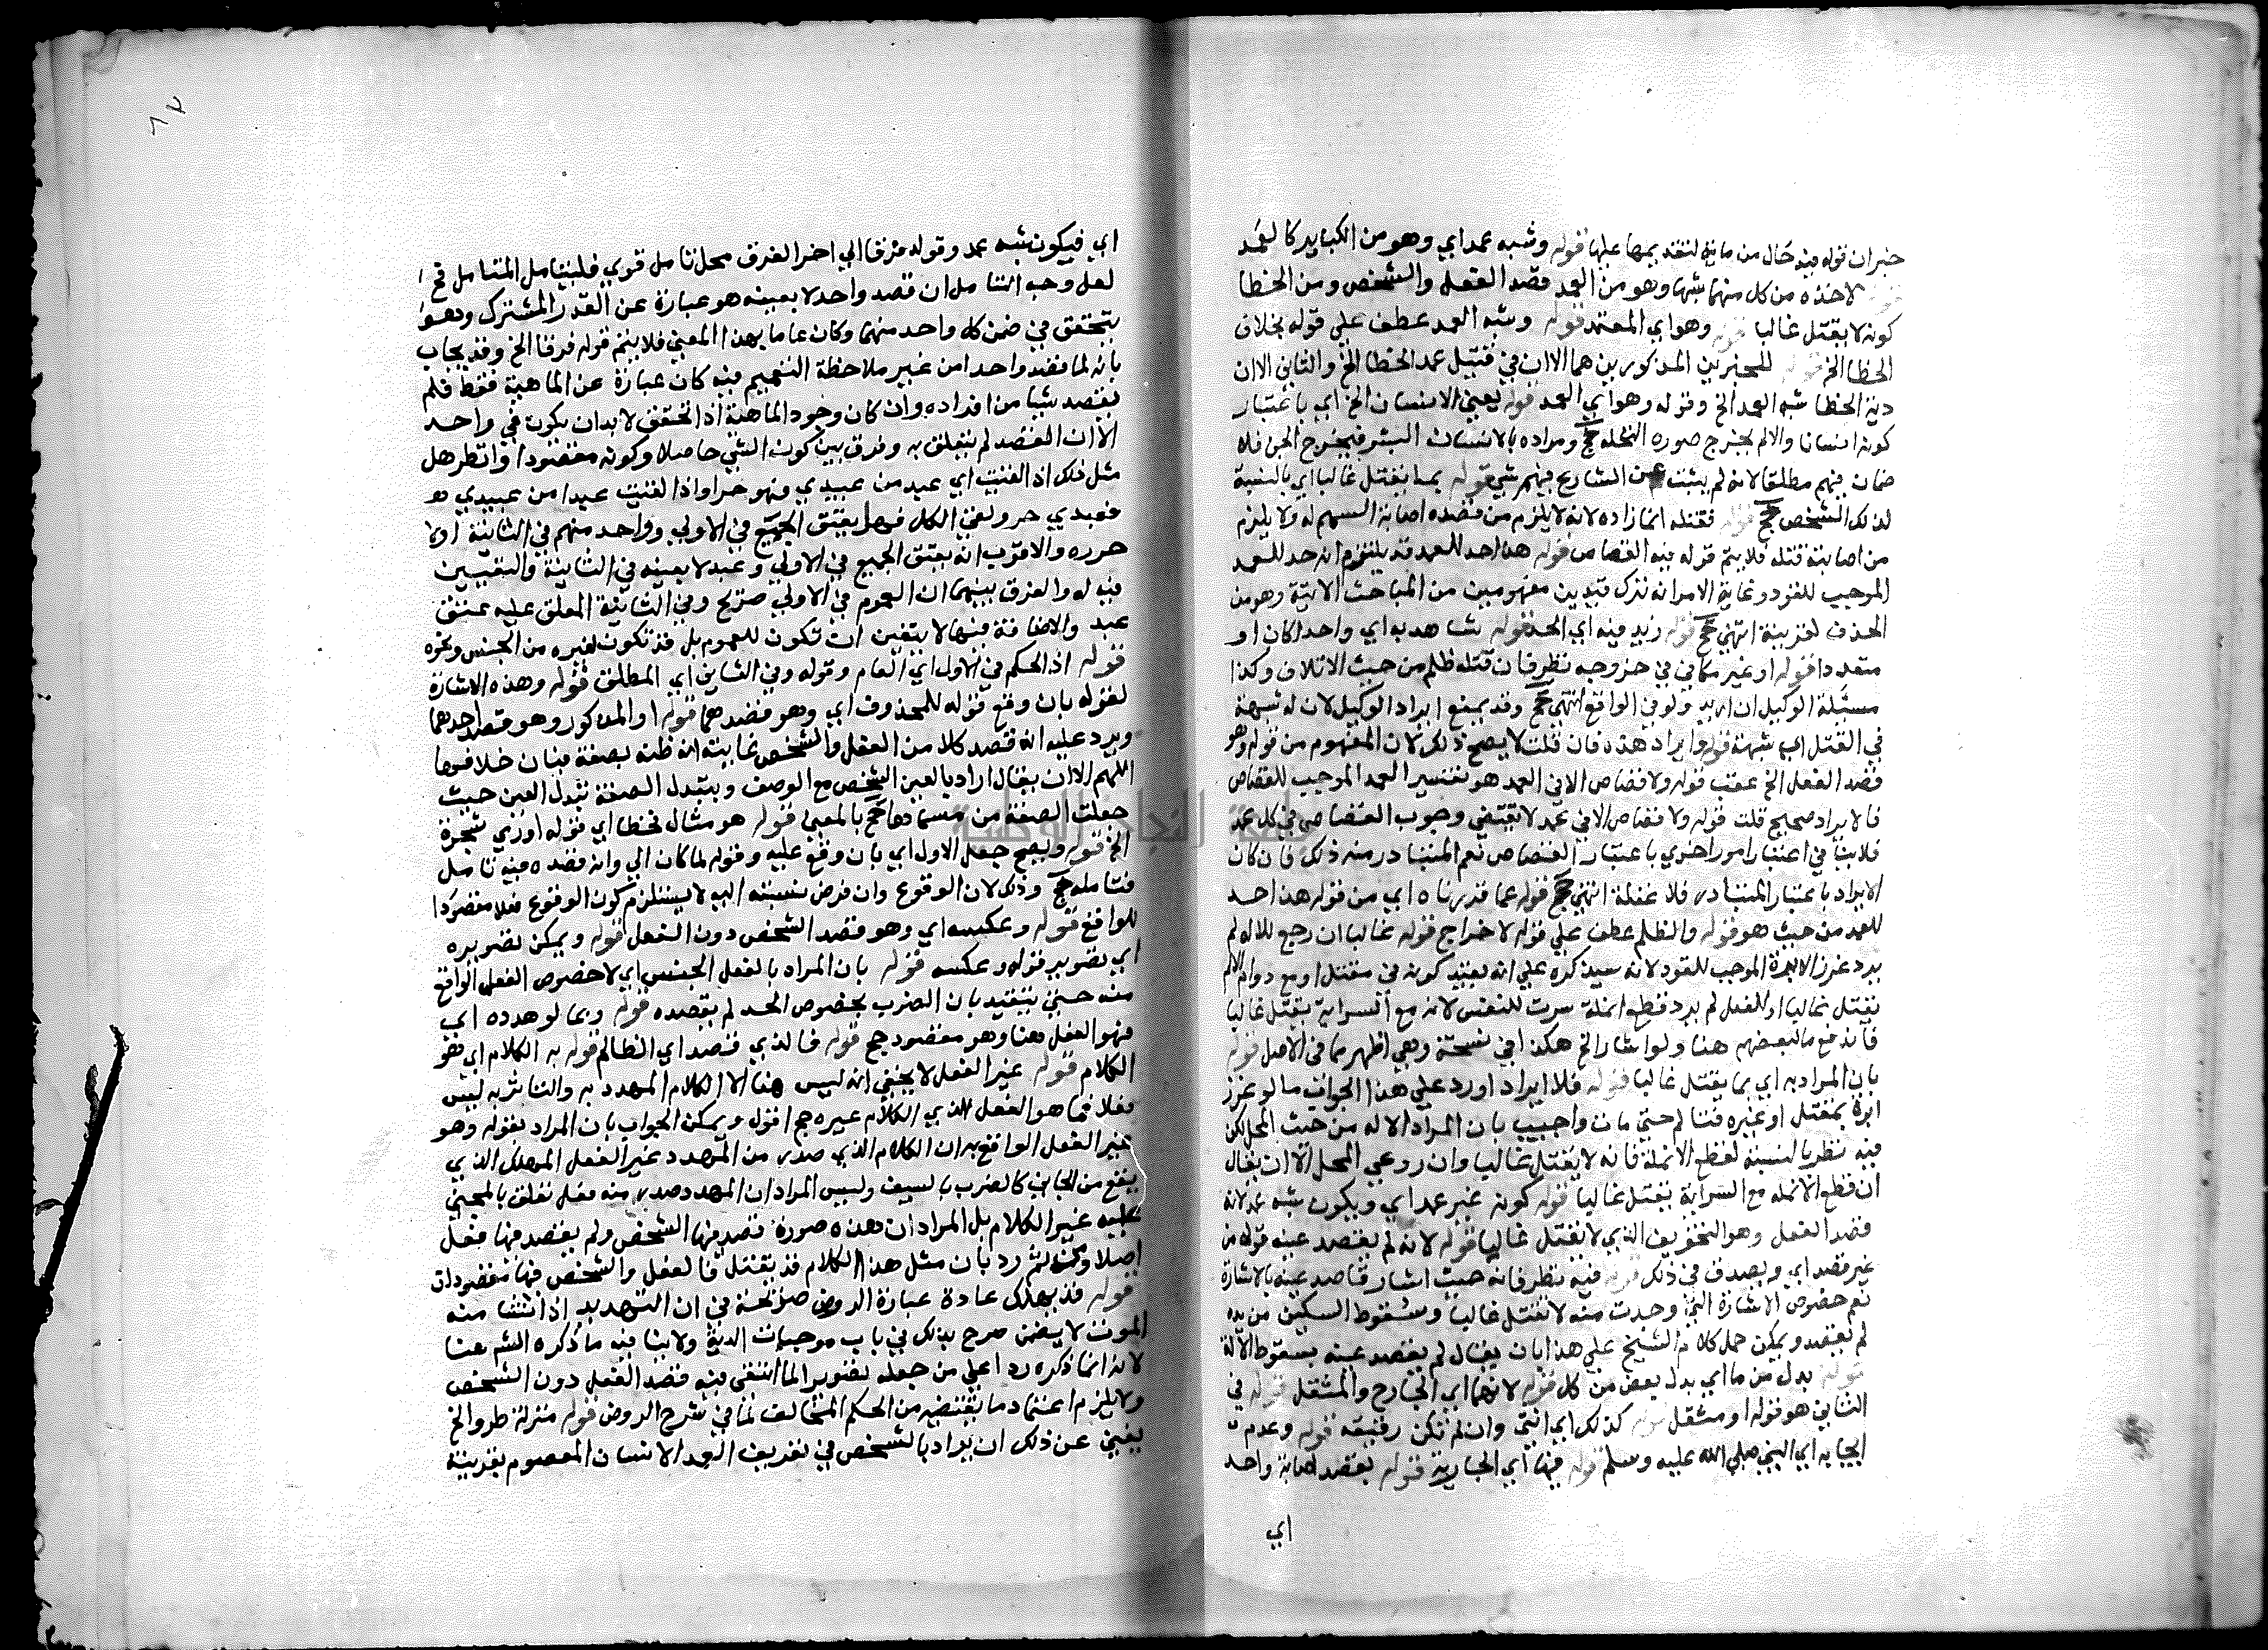 خبران قوله فيه حال من مائة لتقديمها عليها قوله وشبه عمد اي وهو من الكباير كالعمد
لاخذه من كل منهما شبها وهو من العمد قصد الفعل والشخص ومن الخطا
كونه لا يقتل غالبا قوله وهو اي المعتمد قوله وشبه العمد عطف علي قوله بخلاف
الخطا الخ قوله للخبرين المذكورين هما الا ان في قتيل عمد الخطا الخ والثاني الا ان
دية الخطا شبه العمد الخ وقوله وهو اي العمد قوله يعني الانسان الخ اي باعتبار
كونه انسانا والا لم يخرج صورة النخلة حج ومراده بالانسان البشر فيخرج الجن فلا
ضمان فيهم مطلقا لانه لم يثبت عن الشارع فيهم شي قوله بما يقتل غالبا اي بالنسبة
لذلك الشخص حج قوله فقتله انما زاده لانه لا يلزم من قصده اصابة السهم له ولا يلزم
من اصابته قتله فلا يتم قوله فيه القصاص قوله هذا حد للعمد قد يلتزم انه حد للعمد
الموجب للقود وغاية الامر انه ترك قيدين مفهومين من المباحث الاتية وهو من
الحذف لقرينة انتهي حج قوله زيد فيه اي الحد قوله شاهد به اي واحدا كان او
متعددا قوله او غير مكافي في خروجه نظر فان قتله ظلم من حيث الاتلاف وكذا
مسئلة الوكيل ان اريد ولو في الواقع انتهي حج وقد يمنع ايراد الوكيل لان له شبهة
في القتل اي شبهة قوله وايراد هذه فان قلت لا يصح ذلك لان المفهوم من قوله وهو
قصد الفعل الخ عقب قوله ولا قصاص الا في العمد هو تفسير العمد الموجب للقصاص
فالايراد صحيح قلت قوله ولا قصاص الا في عمد لا يقتضي وجوب القصاص في كل عمد
فلا ينافي اعتبار امور اخري باعتبار القصاص نعم المتبادر منه ذلك فان كان
الايراد باعتبار المتبادر فلا غفلة انتهي حج قوله عما قدرناه اي من قوله هذا حد
للعمد من حيث هو قوله والظلم عطف علي قوله لاخراج قوله غالبا ان رجع للالة لم
يرد غرز الابرة الموجب للقود لانه سيذكره علي انه يفيد كونه في مقتل او مع دوام الالم
يقتل غالبا او للفعل لم يرد قطع انملة سرت للنفس لانه مع السراية يقتل غالبا
فاندفع ما لبعضهم هنا ولو اشار الخ هكذا في نسخة وهي اظهر مما في الاصل قوله
بان المراد به اي بما يقتل غالبا قوله فلا ايراد اورد علي هذا الجواب ما لو غرز
ابرة بمقتل او غيره فتالم حتي مات واجيب بان المراد الالة من حيث المحل لكن
فيه نظر بالنسبة لقطع الانملة فانه لا يقتل غالبا وان روعي المحل الا ان يقال
ان قطع الانملة مع السراية يقتل غالبا قوله كونه غير عمد اي ويكون شبه عمد لانه
قصد الفعل وهو التخويف الذي لا يقتل غالبا قوله لانه لم يقصد عينه قوله من
غير قصد اي ويصدق في ذلك قوله فيه نظر فانه حيث اشار قاصد عينه بالاشارة
نعم خصوص الاشارة التي وجدت منه لا تقتل غالبا وسقوط السكين من يده
لم يقصد ويمكن حمل كلام الشيخ علي هذا بان يقال لم يقصد عينه بسقوط الآلة
قوله بدل من ما اي بدل بعض من كل قوله لانهما اي الجارح والمثقل قوله في
الثاني هو قوله او مثقل قوله كذلك اي انثي وان لم تكن رقيقة قوله وعدم
ايجابه اي النبي صلي الله عليه وسلم قوله فيها اي الجارية قوله بقصد اصابة واحد
اي
اي فيكون شبه عمد وقوله فرقا الي اخر الفرق محل تامل قوي فليتامل المتامل قح
لعل وجه التامل ان قصد واحد لا بعينه هو عبارة عن القدر المشترك وهو
يتحقق في ضمن كل واحد منهما وكان عاما بهذا المعني فلا يتم قوله فرقا الخ وقد يجاب
بانه لما قصد واحدا من غير ملاحظة التعميم فيه كان عبارة عن الماهية فقط فلم
يقصد شيا من افراده وان كان وجود الماهية اذا تحقق لا بد ان يكون في واحد
الا ان القصد لم يتعلق به وفرق بين كون الشي حاصلا وكونه مقصودا وانظر هل
مثل ذلك اذا لقيت اي عبد من عبيدي فهو حر او اذا لقيت عبدا من عبيدي
فعبدي حر ولقي الكل فهل يعتق الجميع في الاولي وواحد منهم في الثانية اولا
حرره والاقرب انه يعتق الجميع في الاولي وعبد لا بعينه في الثانية والتعيين
فيه له والفرق بينهما ان العموم في الاولي صريح وفي الثانية المعلق عليه عتق
عبد والاضافة فيها لا يتعين ان تكون للعموم بل قد تكون لغيره من الجنس ونحوه
قوله اذ الحكم في الاول اي العام وقوله وفي الثاني اي المطلق قوله وهذه الاشارة
لقوله بان وقع قوله للمحذوف اي وهو قصدهما قوله او المذكور وهو قصد احدهما
ويرد عليه انه قصد كلا من الفعل والشخص غايته انه ظنه بصفة فبان خلافها
اللهم الا ان يقال اراد بالعين الشخص مع الوصف وبتبدل الصفة تبدل العين حيث
جعلت الصفة من مسماها حج بالمعني قوله هو مثال لخطا اي قوله او رمي شجرة
الخ قوله ويصح جعل الاول اي بان وقع عليه وقوله لما كان الي وانه قصده فيه تامل
فتامله حج وذلك لان الوقوع وان فرض نسبته اليه لا يستلزم كون الوقوع فعلا مقصودا
للواقع قوله وعكسه اي وهو قصد الشخص دون الفعل قوله ويمكن تصويره
اي تصوير قوله وعكسه قوله بان المراد بالفعل الجنس اي لا خصوص الفعل الواقع
منه حتي يتقيد بان الضرب بخصوص الحد لم يقصده قوله وبما لو هدده اي
فهو الفعل هنا وهو مقصود حج قوله فالذي قصد اي الظالم قوله به الكلام اي هو
الكلام قوله غير الفعل لا يخفي انه ليس هنا الا الكلام المهدد به والتاثر به ليس
فعلا فما هو الفعل الذي الكلام غيره حج اقول ويمكن الجواب بان المراد بقوله وهو
غير الفعل الواقع به ان الكلام الذي صدر من المهدد غير الفعل المهلك الذي
يقع من الجاني كالضرب بالسيف وليس المراد ان المهدد صدر منه فعل تعلق بالمجني
عليه غير الكلام بل المراد ان هذه صورة قصد فيها الشخص ولم يقصد فيها فعل
اصلا ولكنه رد بان مثل هذا الكلام قد يقتل فالفعل والشخص فيها مقصودان
قوله قد يهلك عادة عبارة الروض صريحة في ان التهديد اذا نشا منه
الموت لا يضمن صرح بذلك في باب موجبات الدية ولا ينافيه ما ذكره الشم هنا
لانه انما ذكره ردا علي من جعله تصويرا لما انتفي فيه قصد الفعل دون الشخص
ولا يلزم اعتماد ما يقتضيه من الحكم المخالف لما في شرح الروض قوله منزلة طرو الخ
يغني عن ذلك ان يراد بالشخص في تعريف العمد الانسان المعصوم بقرينة